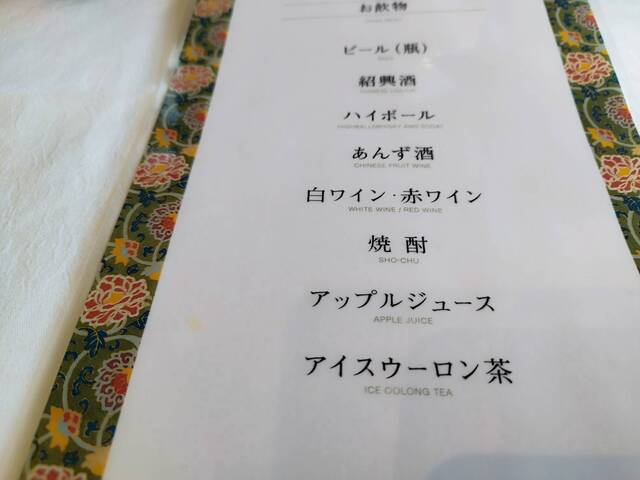 お飲物
ビール（瓶）
BEER
紹興酒
CHINESE LIQUOR
ハイボール
HIGHBALL(WHISKY AND SODA)
あんず酒
CHINESE FRUIT WINE
白ワイン・赤ワイン
WHITE WINE / RED WINE
焼酎
SHO-CHU
アップルジュース
APPLE JUICE
アイスウーロン茶
ICE OOLONG TEA